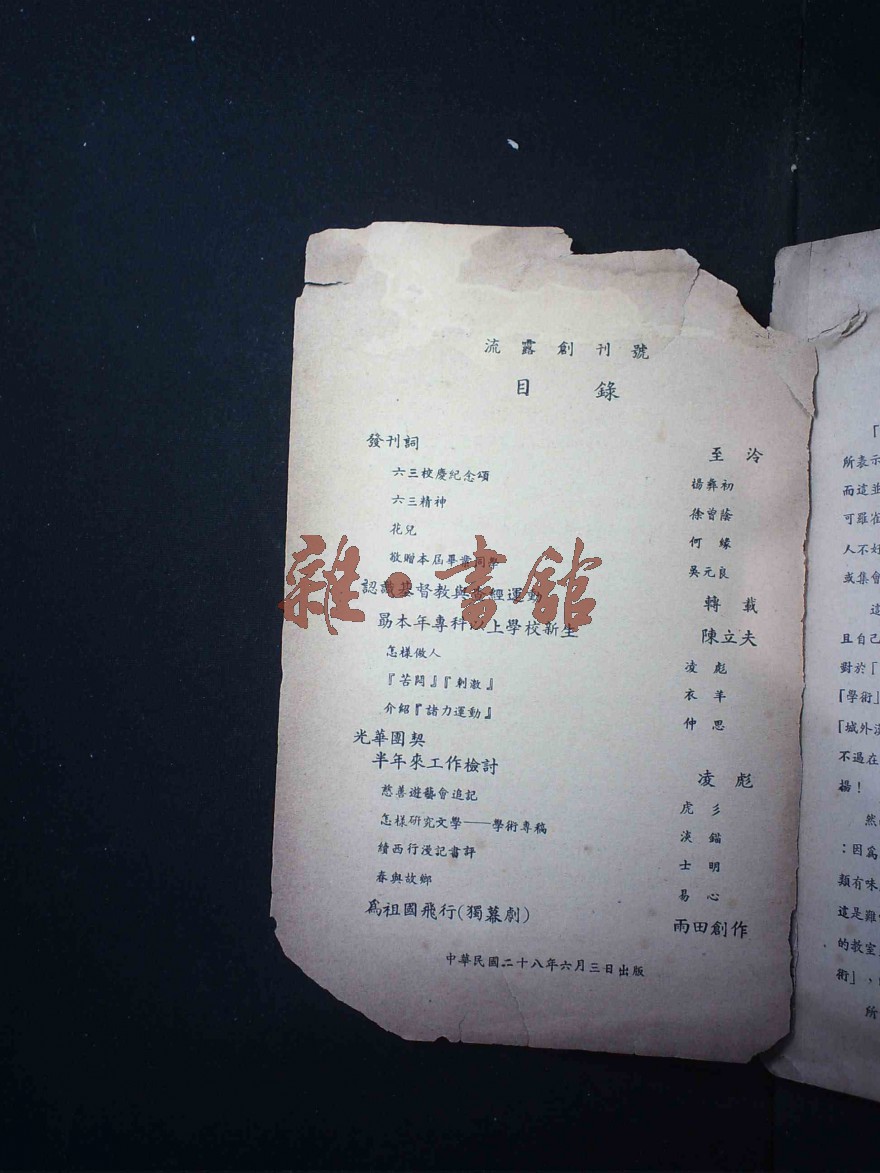 流露創刊號
目錄
發刊詞 至泠
六三校慶紀念頌 楊彝初
六三精神 徐曾蔭
花兒 何緣
敬贈本屆畢業同學 吳元良
認識基督教與查經運動 轉載
勗本年專科以上學校新生 陳立夫
怎樣做人 凌彪
『苦悶』『刺激』 衣羊
介紹『諸力運動』 仲思
光華團契
半年來工作檢討 凌彪
慈善遊藝會追記 虎彡
怎樣研究文學——學術專稿 淡錨
續西行漫記書評 士明
春與故鄉 易心
為祖國飛行(獨幕劇) 雨田創作
中華民國二十八年六月三日出版
雜·書館
「
所表示
而這並
可羅雀
人不好
或集會
這
且自己
對於「
「學術」
「城外
不過在
揚！
然
：因為
類有味
這是難
的教室
術」、
所